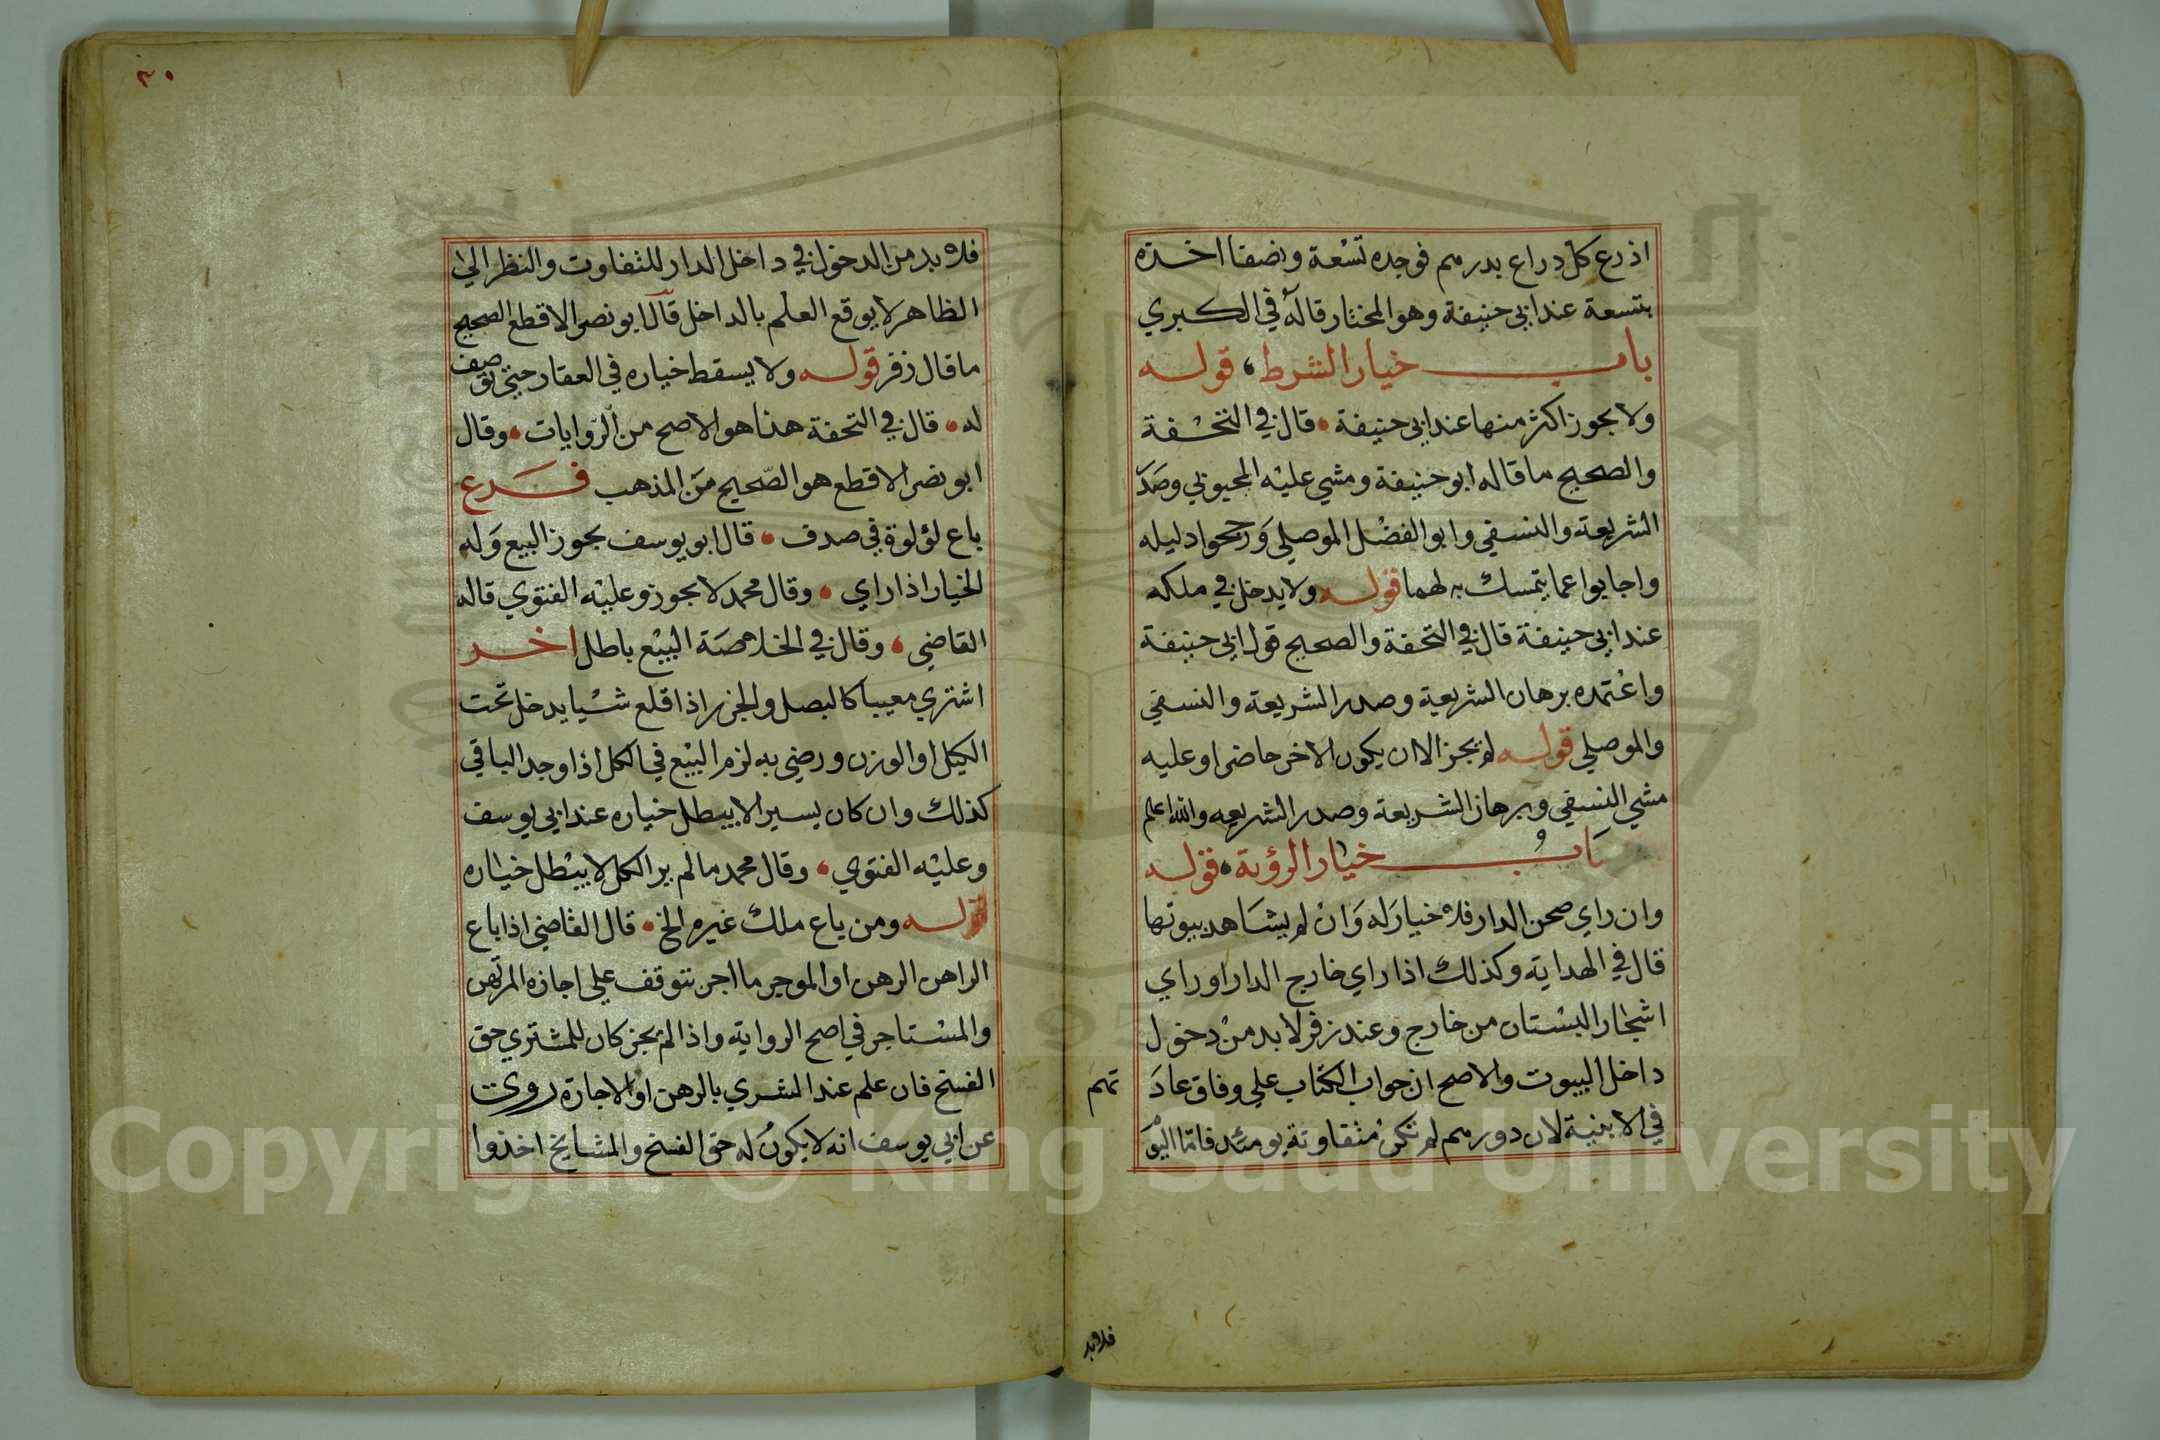 اذرع كل ذراع بدرهم فوجده تسعة ونصفا اخذه
بتسعة عند ابي حنيفة وهو المختار قاله في الكبري
باب خيار الشرط، قوله
ولا يجوز اكثر منها عند ابي حنيفة • قال في التحفة
والصحيح ما قاله ابو حنيفة ومشي عليه المحبوبي وصدَ
الشريعة والنسفي وابو الفضل الموصلي وَرجحوا دليله
واجابوا عما يتمسك به لهما قوله ولا يدخل في ملكه
عند ابي حنيفة قال في التحفة والصحيح قول ابي حنيفة
واعتمده برهان الشريعة وصدر الشريعة والنسفي
والموصلي قوله لم يجز الا ان يكون الاخر حاضرا وعليه
مشي النسفي وبرهان الشريعة وصدر الشريعه والله اعلم
بَابُ خيار الرؤية • قوله
وان راي صحن الدار فلا خيار له وَان لم يشاهد بيوتها
قال في الهداية وكذلك اذا راي خارج الدار او راي
اشجار البستان من خارج وعند زفر لا بد من دخول
داخل البيوت والاصح ان جواب الكتاب علي وفاق عادَ
تهم
في الابنية لان دورهم لم تكن متفاوتة يومئذ فاما اليوَم
فلا بد
٣٠
فلا بد من الدخول في داخل الدار للتفاوت والنظر الي
الظاهر لا يوقع العلم بالداخل قال ابو نصر الاقطع الصحيح
ما قال زفر قوله ولا يسقط خياره في العقار حتي توصف
له • قال في التحفة هذا هو الاصح من الروايات • وقال
ابو نصر الاقطع هو الصّحيح من المذهب فرع
باع لؤلوة في صدف • قال ابو يوسف يجوز البيع وَله
الخيار اذا راي • وقال محمد لا يجوز وعليه الفتوي قاله
القاضي • وقال في الخلاصة البيع باطل اخر
اشتري معيبا كالبصل والجزر اذا قلع شيا يدخل تحت
الكيل او الوزن ورضي به لزم البيع في الكل اذا وجد الباقي
كذلك وان كان يسيرا لا يبطل خياره عند ابي يوسف
وعليه الفتوي • وقال محمد ما لم ير الكل لا يبطل خياره
قوله ومن باع ملك غيره الخ • قال القاضي اذا باع
الراهن الرهن او الموجر ما اجر تتوقف علي اجازه المرتهن
والمستاجر في اصح الرواية واذا لم يجز كان للمشتري حق
الفسخ فان علم عند الشري بالرهن او الاجارة روي
عن ابي يوسف انه لا يكون له حق الفسخ والمشايخ اخذوا
Copyright © King Saud University